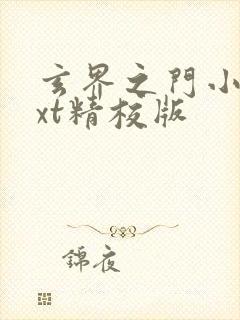 玄界之門小
xt精校版
錦夜